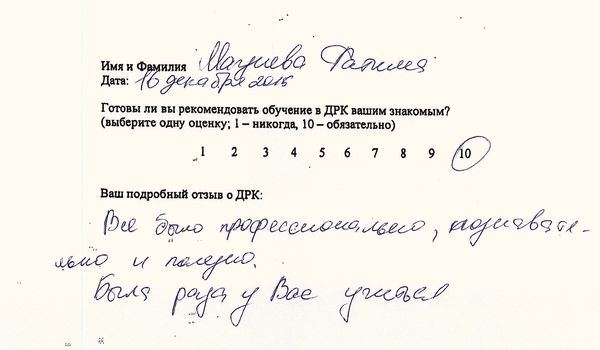 Имя и Фамилия Магуева Фатима
Дата: 16 декабря 2015
Готовы ли вы рекомендовать обучение в ДРК вашим знакомым?
(выберите одну оценку; 1 – никогда, 10 – обязательно)
1 2 3 4 5 6 7 8 9 10
Ваш подробный отзыв о ДРК:
Все было профессионально, познавате-
льно и полезно.
Была рада у Вас учиться